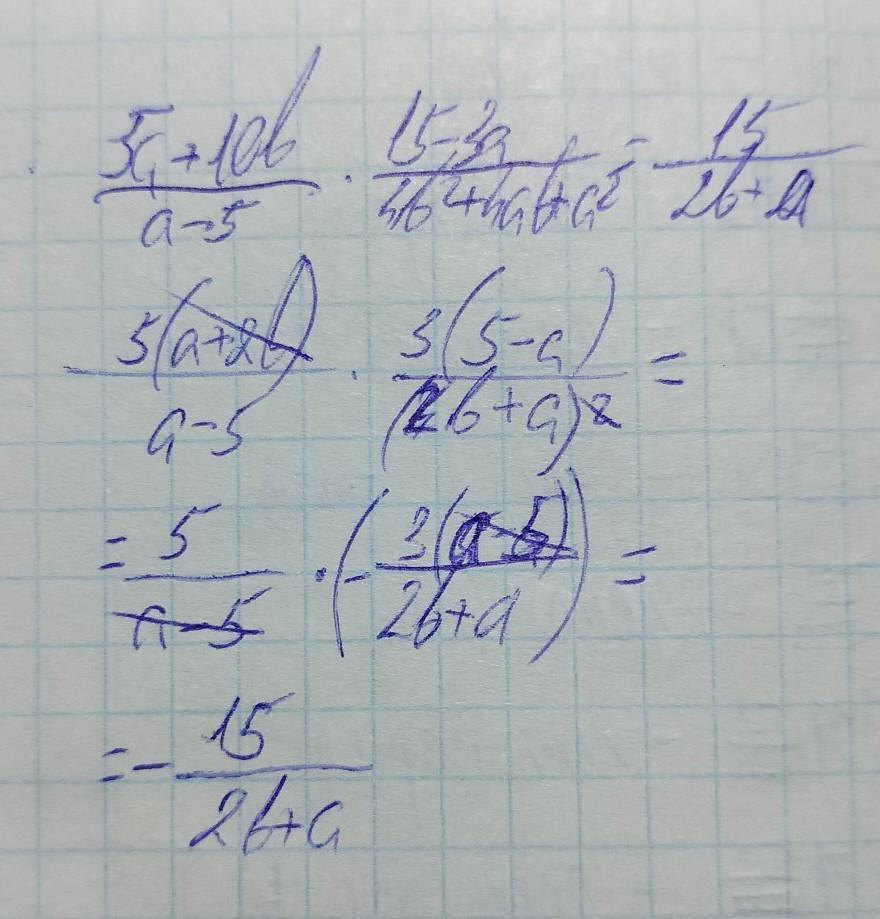 (5a + 10b)/(a - 5) · (15 - 3a)/(4b² + 4ab + a²) = 15/(2b + a)
5(a + 2b)/(a - 5) · 3(5 - a)/(2b + a)² =
= 5/(a - 5) · (- 3(a - 5)/(2b + a)) =
= - 15/(2b + a)